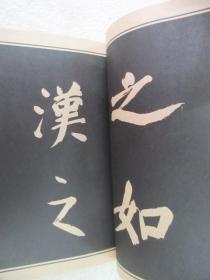 之如
漢之